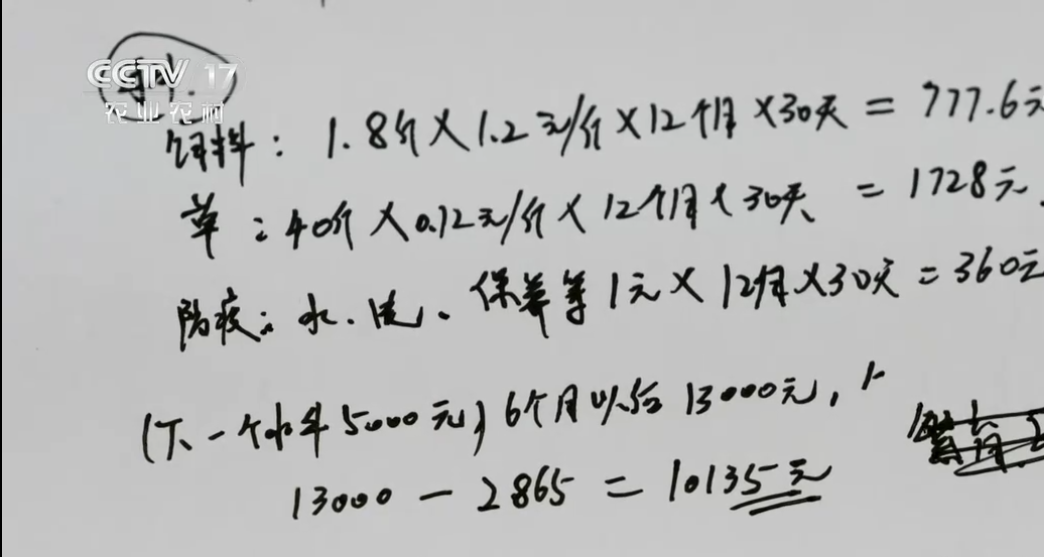 CCTV 17
农业农村
饲料：1.8斤×1.2元/斤×12个月×30天=777.6元
草：40斤×0.12元/斤×12个月×30天=1728元
防疫：水、电、保养等1元×12月×30天=360元
(下一个小牛5000元)6个月以后13000元，
13000-2865=10135元